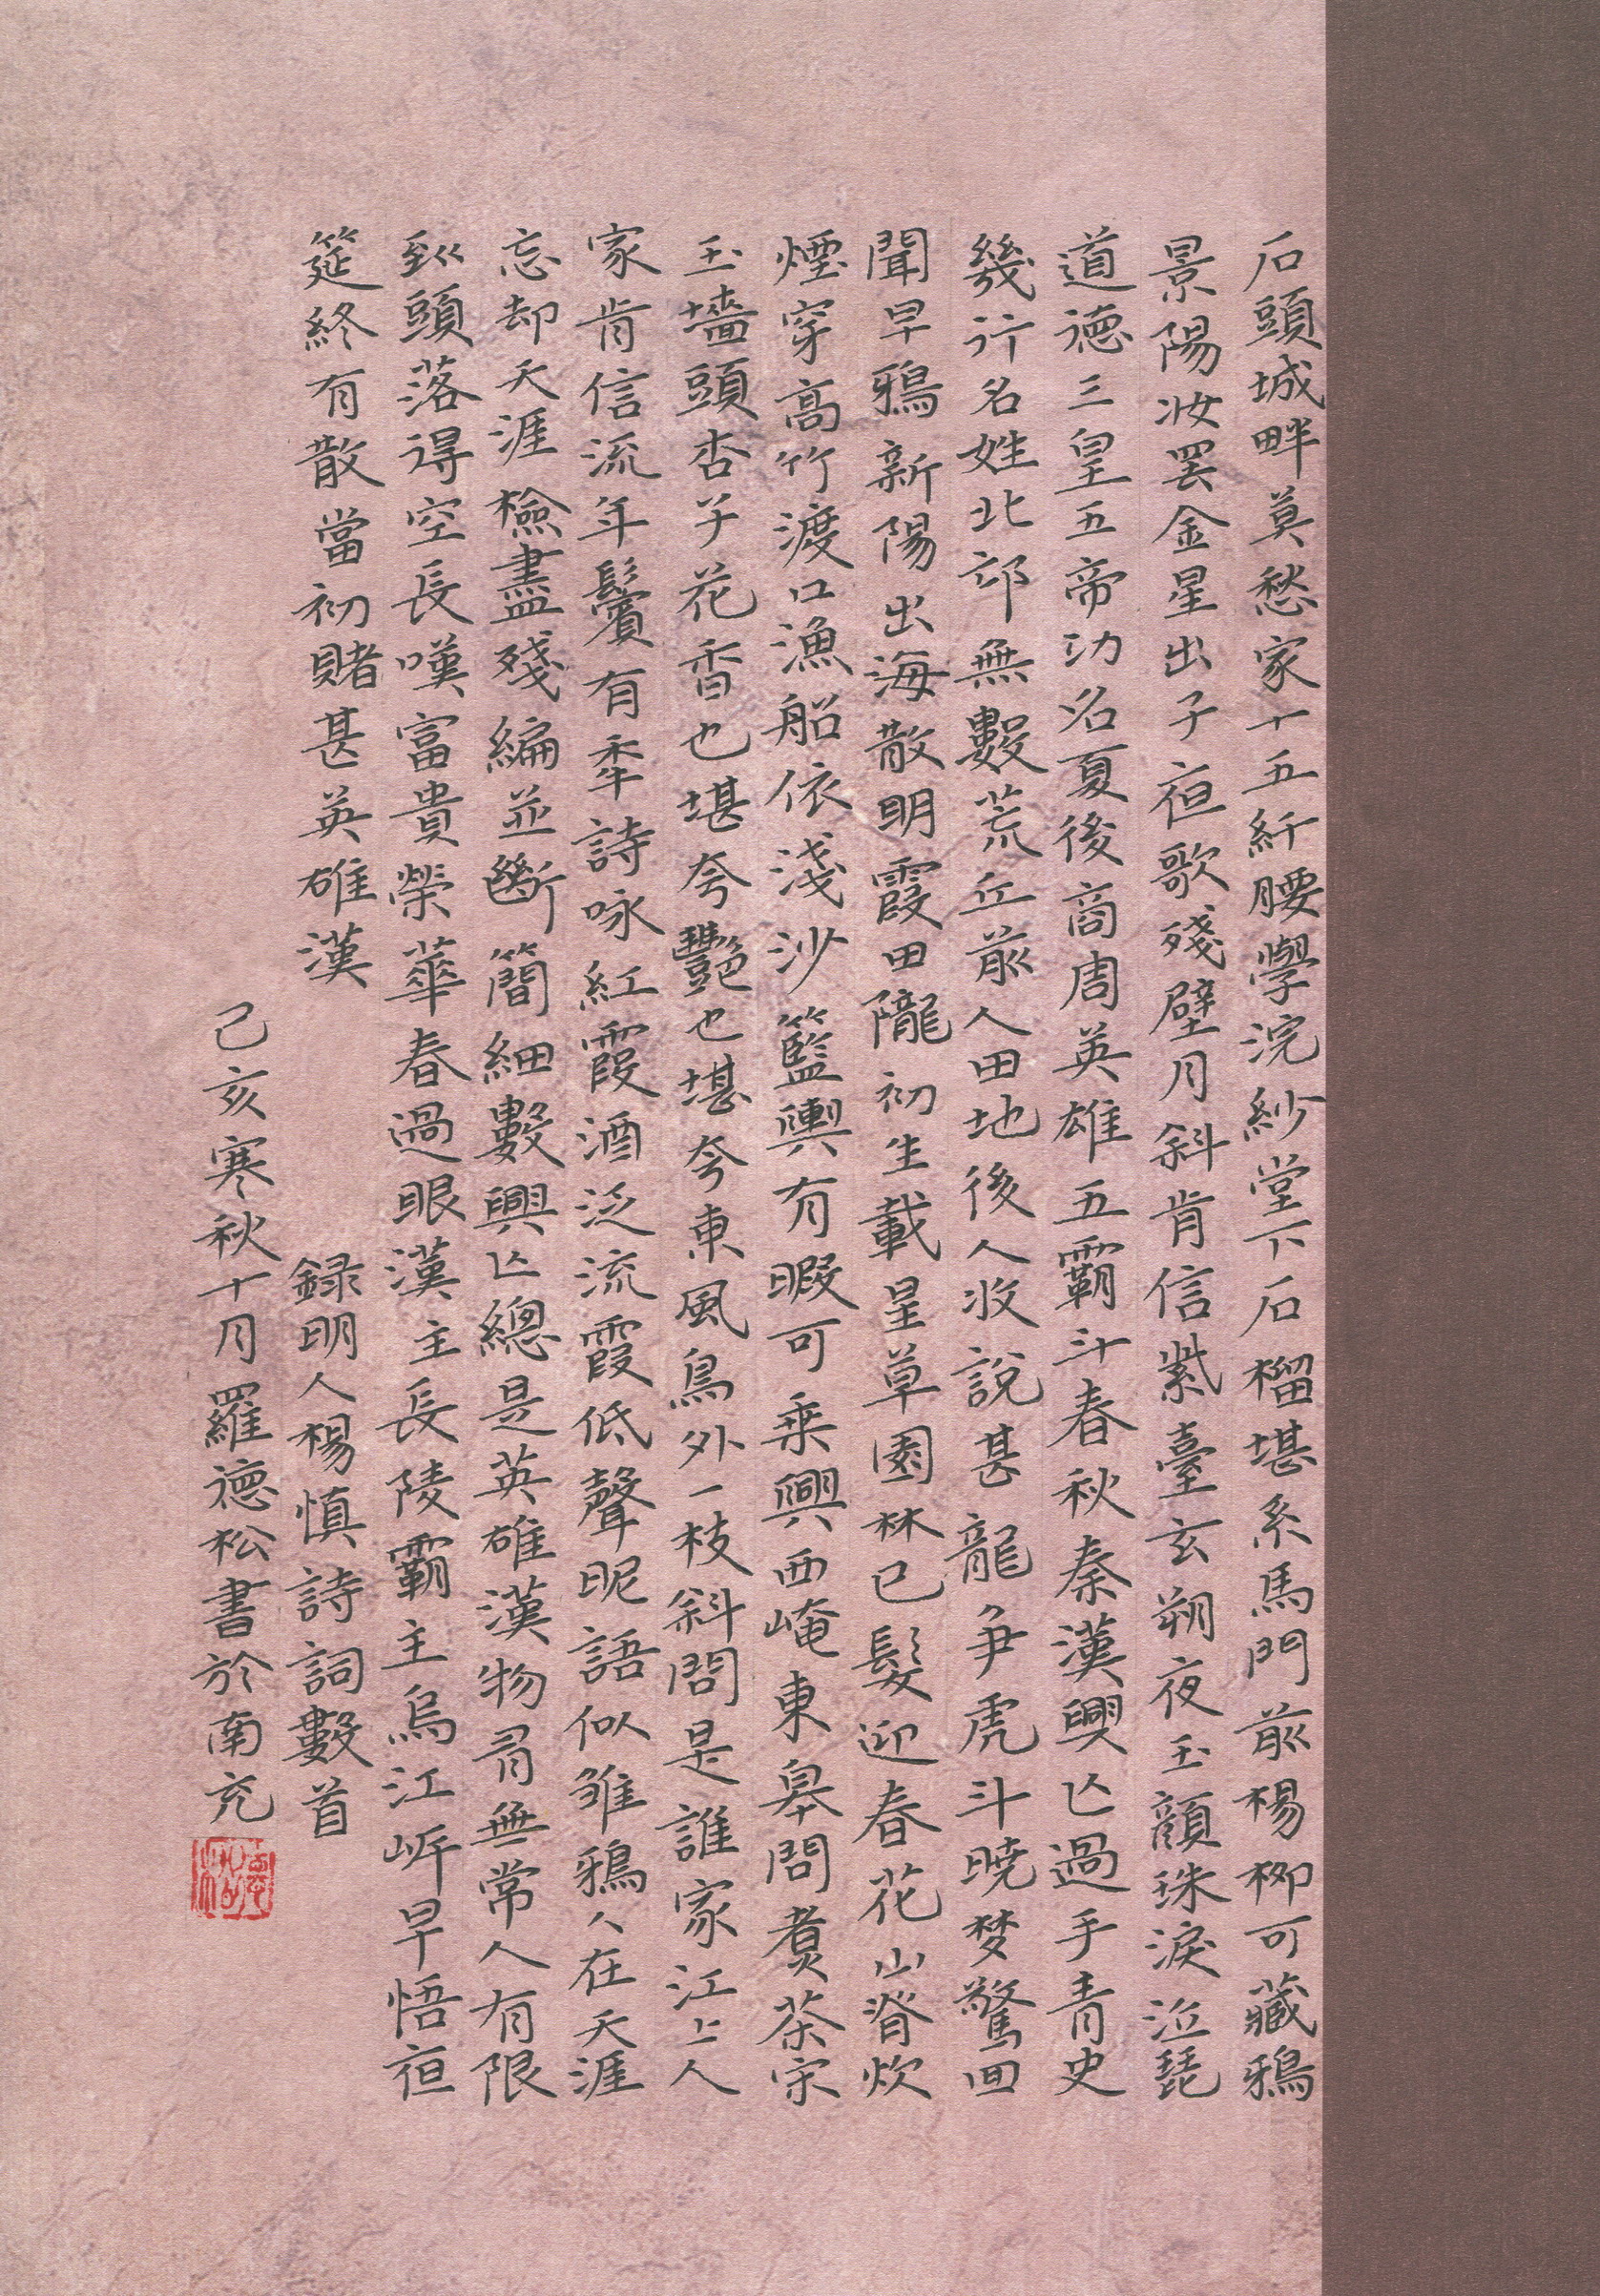 石頭城畔莫愁家十五纖腰學浣紗堂下石榴堪系馬門前楊柳可藏鴉
景陽妝罷金星出子夜歌殘壁月斜肯信紫臺玄朔夜玉顏珠淚泣琵
道德三皇五帝功名夏後商周英雄五霸斗春秋秦漢興亡過手青史
幾行名姓北邙無數荒丘前人田地後人收說甚龍爭虎斗曉梦驚回
聞早鴉新陽出海散明霞田隴初生載星草園林已髮迎春花山脊炊
煙穿高竹渡口漁船依淺沙籃輿有暇可乘興西崦東皋問煮茶宋
玉墻頭杏子花香也堪夸艷也堪夸東風鳥外一枝斜問是誰家江上人
家肯信流年鬢有華詩咏紅霞酒泛流霞低聲昵語似雏鴉人在天涯
忘却天涯檢盡殘編並斷簡細數興亡總是英雄漢物有無常人有限
到頭落得空長嘆富貴榮華春過眼漢主長陵霸主烏江岸早悟夜
筵終有散當初賭甚英雄漢
録明人楊慎詩詞數首
己亥寒秋十月羅德松書於南充